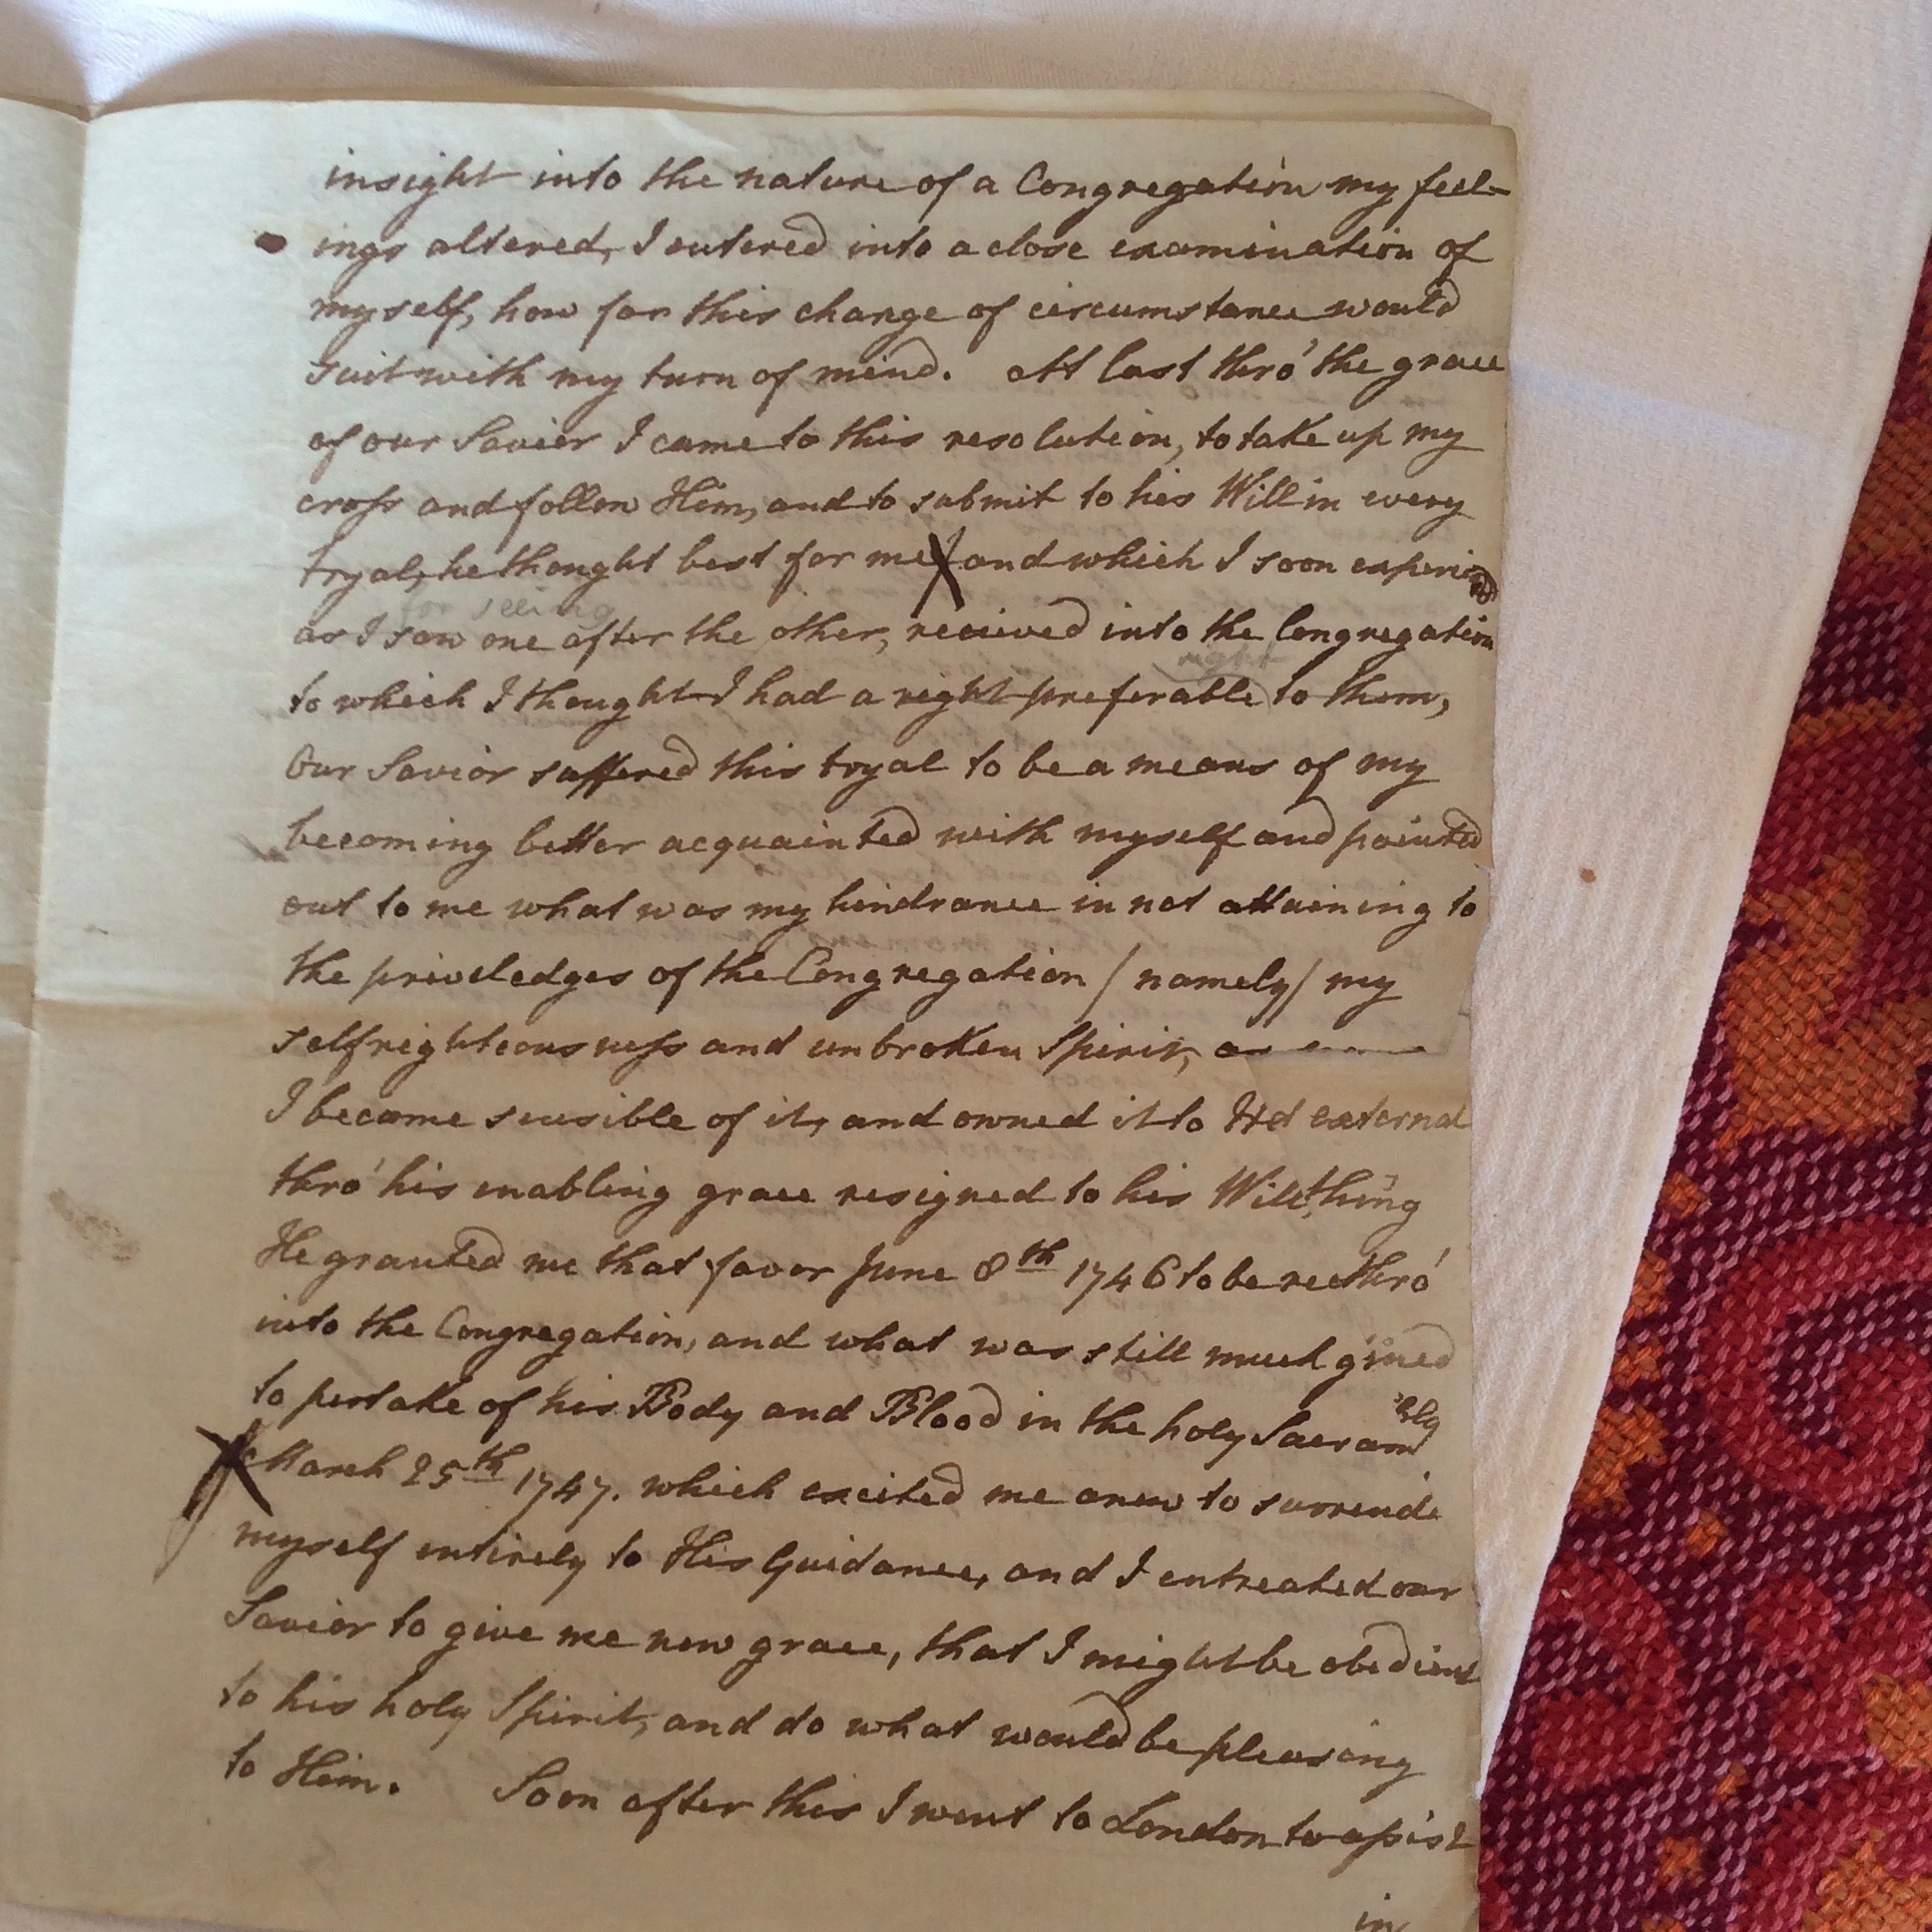 insight into the nature of a Congregation my feel-
ings altered, I entered into a close examination of
myself, how far this change of circumstance would
suit with my turn of mind. At last thro' the grace
of our Savior I came to this resolution, to take up my
cross and follow Him, and to submit to his Will in every
tryal, he thought best for me and which I soon
for seeing
as I saw one after the other, recieved into the Congregation
right
to which I thought I had a right preferable to them,
Our Savior suffered this tryal to be a means of my
becoming better acquainted with myself and pointed
out to me what was my hindrance in not attaining to
the priviledges of the Congregation / namely / my
selfrighteousness and unbroken Spirit, as
I became sensible of it, and owned it to external
thro' his enabling grace resigned to his Will, thing
He granted me that favor June 8th 1746 to be thro'
into the Congregation, and what was still much
to partake of his Body and Blood in the holy Sacram
March 25th 1747. which excited me anew to surrende
myself entirely to His Guidance, and I entreated our
Savior to give me new grace, that I might be obedient
to his holy Spirit, and do what would be pleasing
to Him. Soon after this I went to London to assist
in